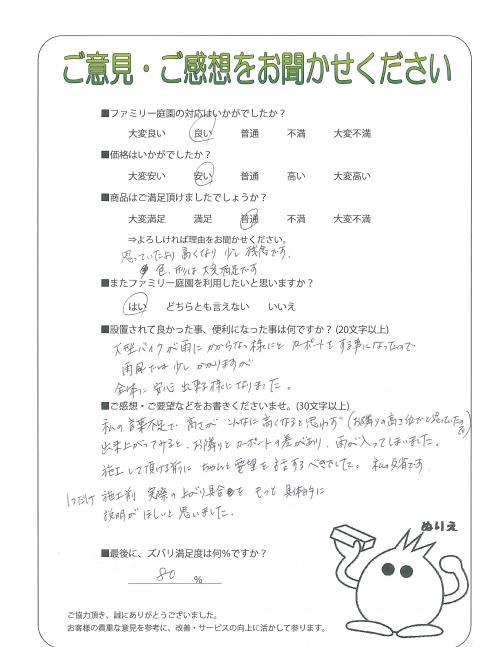 ご意見・ご感想をお聞かせください
■ファミリー庭園の対応はいかがでしたか？
大変良い 良い 普通 不満 大変不満
■価格はいかがでしたか？
大変安い 安い 普通 高い 大変高い
■商品はご満足頂けましたでしょうか？
大変満足 満足 普通 不満 大変不満
⇒よろしければ理由をお聞かせください。
思っていたより高くなり少し残念です。
色、形は大変満足です。
■またファミリー庭園を利用したいと思いますか？
はい どちらとも言えない いいえ
■設置されて良かった事、便利になった事は何ですか？(20文字以上)
大型バイクが雨にかからない様にとカーポートをする事になったので
雨風では少しかかりますが
全体に安心出来る様になりました。
■ご感想・ご要望などをお書きくださいませ。(30文字以上)
私の言葉不足で高さがこんなに高くなると思わず(お隣りの高さ位だと思っていたので)
出来上がってみると、お隣りとカーポートの差があり、雨が入ってしまいました。
施工して頂ける前にちゃんと要望を話するべきでした。私の反省です。
1つだけ 施工前 実際の上がり具合をもっと具体的に
説明がほしいと思いました。
ぬりえ
■最後に、ズバリ満足度は何％ですか？
80 ％
ご協力頂き、誠にありがとうございました。
お客様の貴重な意見を参考に、改善・サービスの向上に活かして参ります。